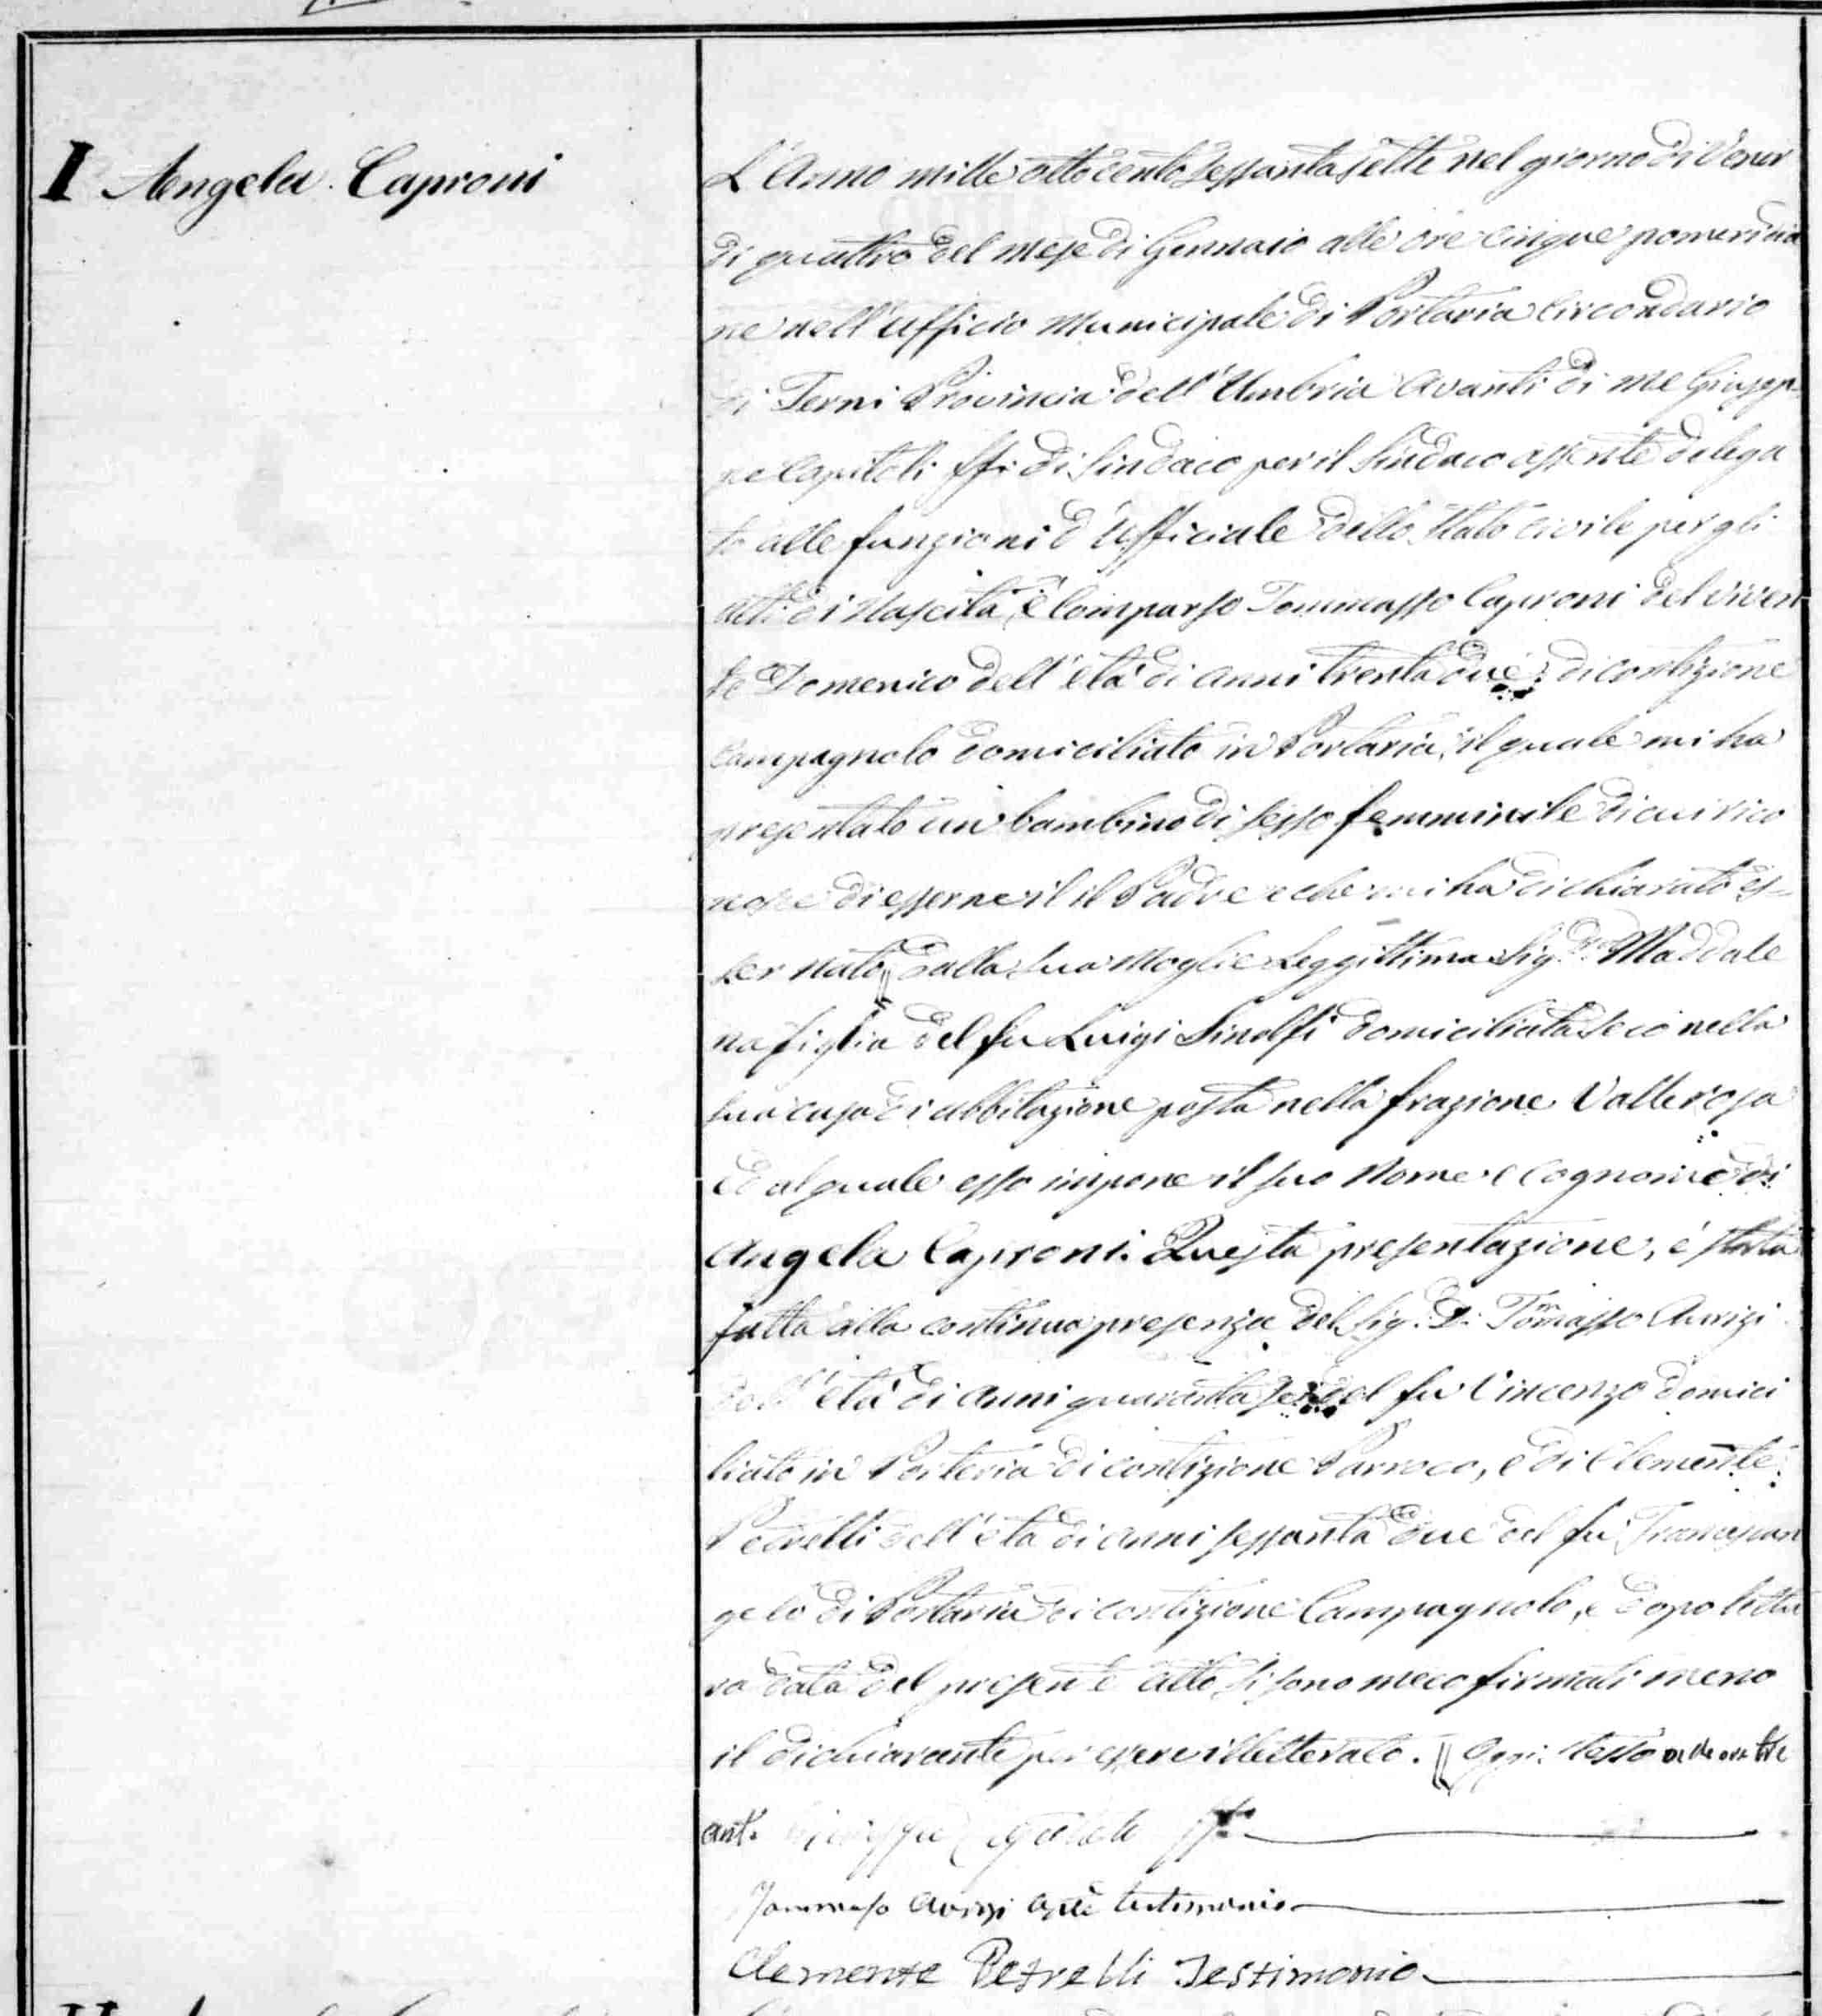 I Angela Caproni
L'Anno mille ottocento sessantasette nel giorno di Vener
di quattro del mese di Gennaio alle ore cinque pomeridia
ne nell'Ufficio Municipale di Portaria Circondario
di Terni Provincia dell'Umbria Avanti di me Giusep-
pe Capitoli ff: di Sindaco per il Sindaco assente delega
to alle funzioni d'Ufficiale dello Stato Civile per gli
atti di Nascita, è Comparso Tommasso Caproni del viven
te Domenico dell'età di anni trentadue di condizione
Campagnolo domiciliato in Portaria, il quale mi ha
presentato un bambino di sesso femminile di cui rico
nosce di esserne il il Padre e che mi ha dichiarato es-
ser nato dalla sua Moglie Leggittima Sig.ra Maddale
na figlia del fu Luigi Sinolfi domiciliata seco nella
sua casa di abbitazione posta nella frazione Valle rosa
Ed al quale esso impone il suo Nome e Cognome di
Angela Caproni. Questa presentazione, è stata
fatta alla continua presenza del Sig. D. Tommasso Aurizi
dell'età di anni quaranta sei del fu Vincenzo domici
liato in Porteria di condizione Parroco, e di Clemente
Petrelli dell'età di anni sessanta due del fu Francescan
gelo di Portaria di condizione Campagnolo, e dopo lettu
ra data del presente atto si sono meco firmati meno
il dichiarante per essere illetterato. Oggi stesso alle ore tre
ant. Giuseppe Capitoli ff
Tommaso Aurizi Arpte testimonio
Clemente Petrelli Testimonio